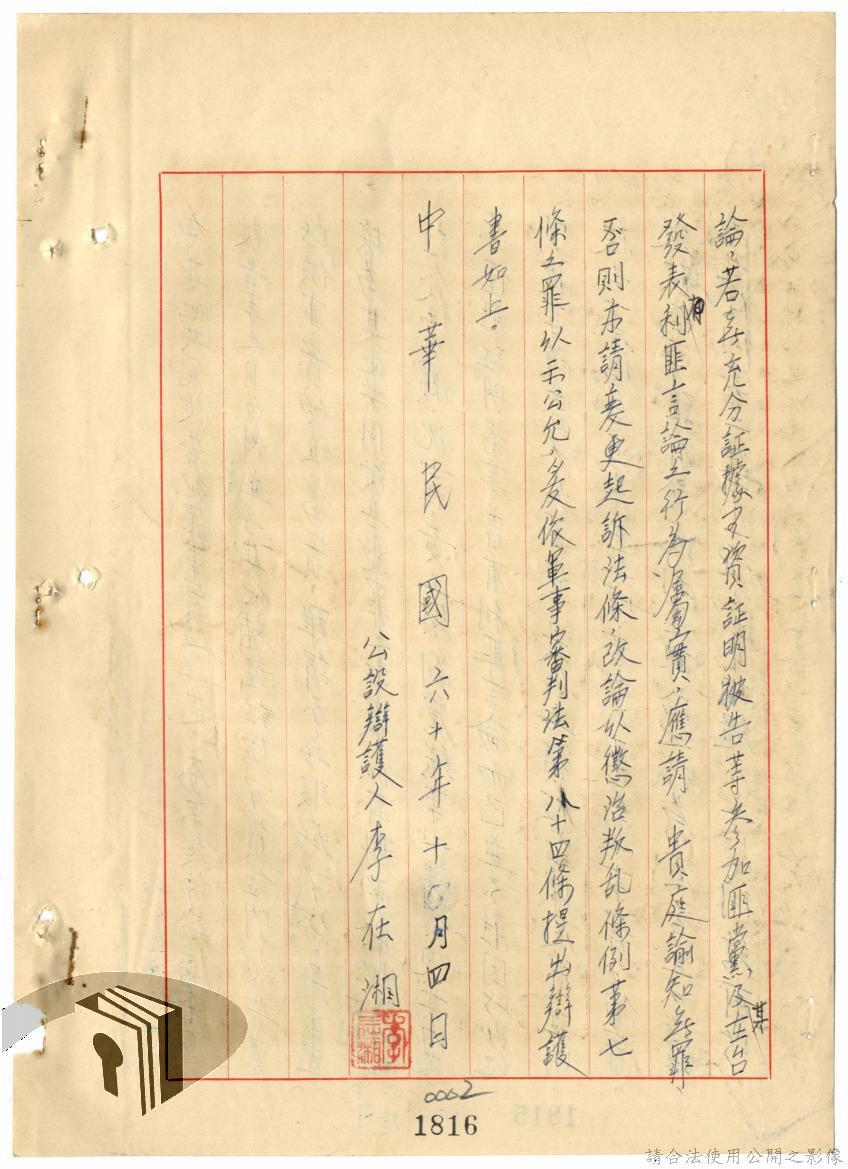 論，若無充分証據可資証明被告等參加匪黨及其在台
發表有利匪言論之行為屬實，應請　貴庭諭知無罪
否則亦請變更起訴法條，改論以懲治叛乱條例第七
條之罪以示公允，爰依軍事審判法第八十四條提出辯護
書如上。
中華民國六十年十月四日
公設辯護人李在湘
0062
1816
請合法使用公開之影像